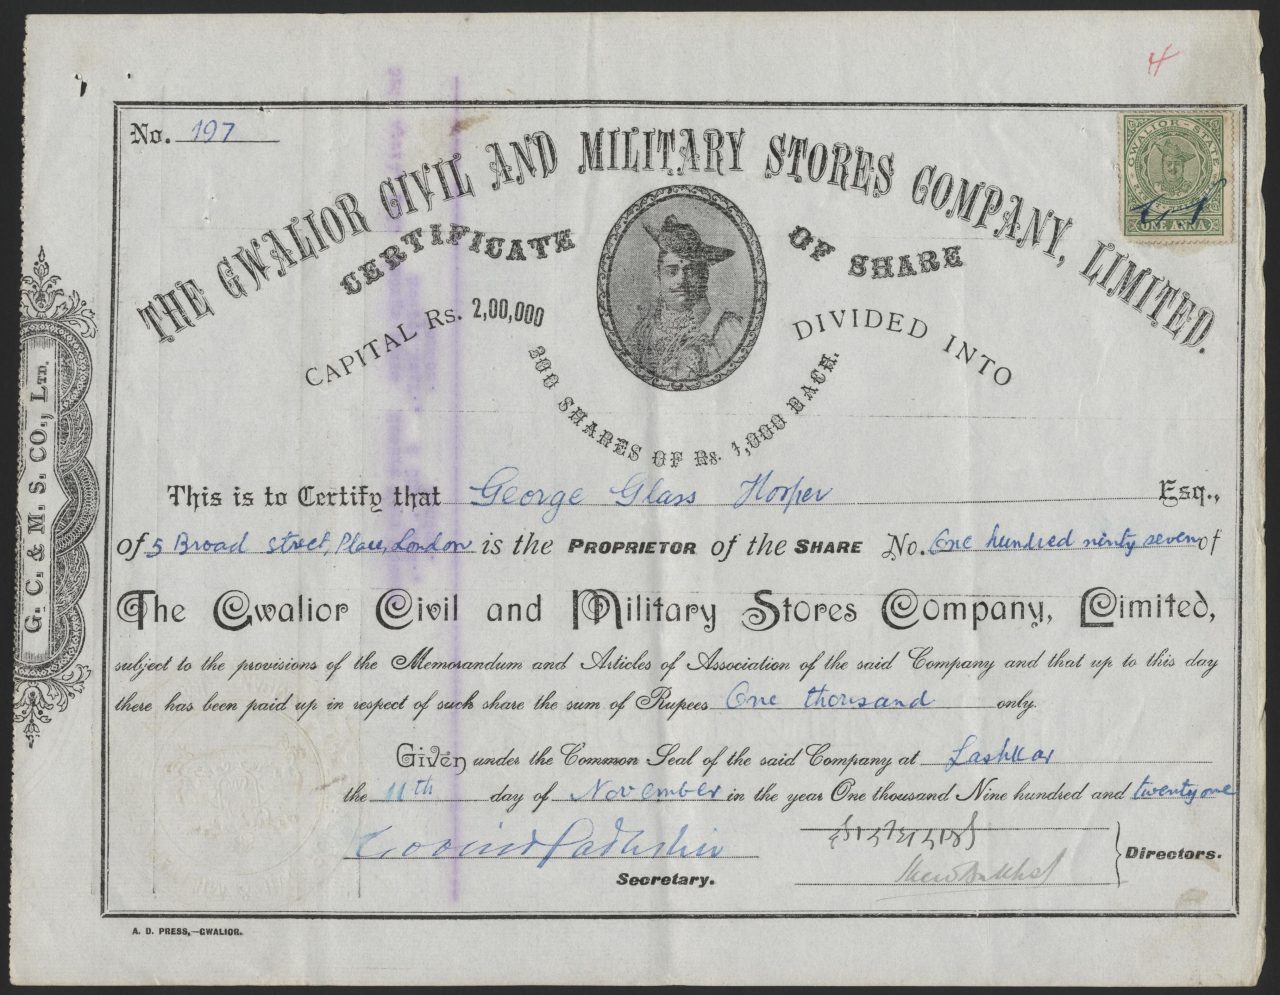 4
No. 197
GWALIOR STATE
ONE ANNA
THE GWALIOR CIVIL AND MILITARY STORES COMPANY, LIMITED.
CERTIFICATE OF SHARE
CAPITAL Rs. 2,00,000 DIVIDED INTO
200 SHARES OF Rs. 1,000 EACH.
G. C. & M. S. CO., LTD.
This is to Certify that George Glass Hooper Esq.,
of 5 Broad Street, Place, London is the PROPRIETOR of the SHARE No. One hundred ninty seven of
The Gwalior Civil and Military Stores Company, Limited,
subject to the provisions of the Memorandum and Articles of Association of the said Company and that up to this day
there has been paid up in respect of such share the sum of Rupees One thousand only.
Given under the Common Seal of the said Company at Lashkar
the 11th day of November in the year One thousand Nine hundred and twenty one
Secretary.
Directors.
A. D. PRESS,—GWALIOR.